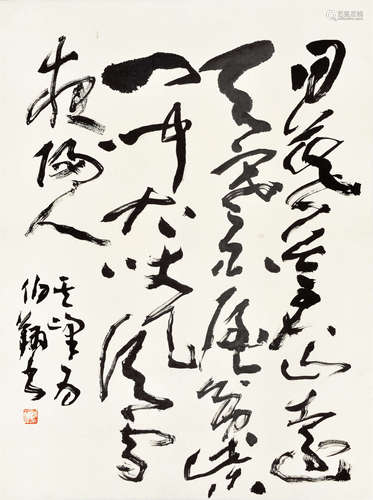 日暮苍山远
天寒白屋贫柴
门闻犬吠风雪
夜归人
为
伯翔书